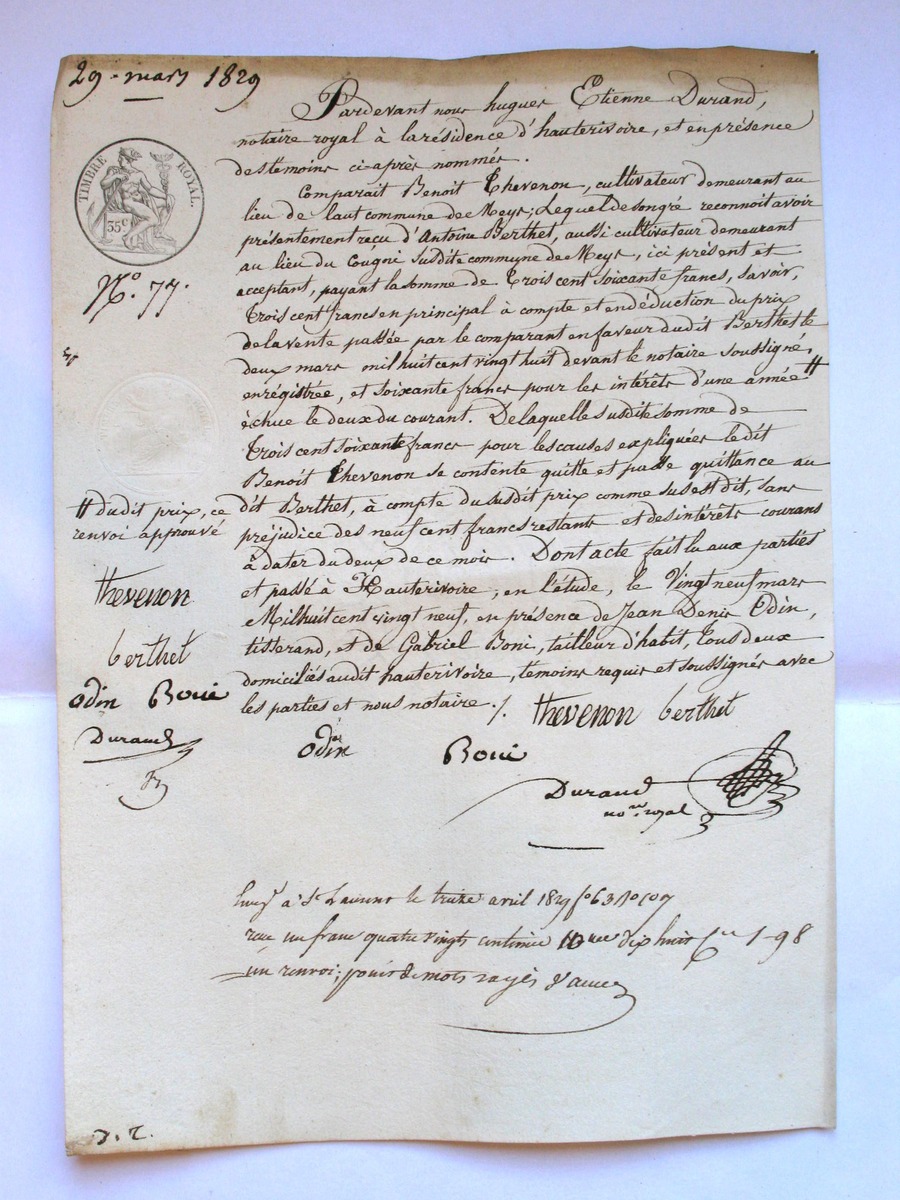 29. mars 1829
TIMBRE ROYAL.
35c
No. 77.
Pardevant nous hugues Etienne Durand,
notaire royal à la résidence d'hauterivoire, et en présence
des témoins ci-après nommés.
Comparait Benoit Thevenon, cultivateur demeurant au
lieu de Laut commune de Meys; Lequel de son gré reconnoit avoir
présentement reçu d'Antoine Berthet, aussi cultivateur demeurant
au lieu du Cougni susdite commune de Meys, ici présent et
acceptant, payant la somme de Trois cent soixante francs, savoir,
Trois cent francs en principal à compte et en déduction du prix
de la vente passée par le comparant en faveur dudit Berthet le
deux mars mil huit cent vingt huit devant le notaire soussigné,
enrégistrée, et soixante francs pour les intérêts d'une année #
échue le deux du courant. De laquelle susdite somme de
Trois cent soixante francs pour les causes expliquées le dit
Benoit Thevenon se contente quitte et passe quittance au
dit Berthet, à compte du susdit prix comme sus est dit, sans
préjudice des neuf cent francs restants et des intérêts courans
à dater du deux de ce mois. Dont acte fait lu aux parties
et passé à Hauterivoire, en l'étude, le Vingt neuf mars
Mil huit cent vingt neuf, en présence de Jean Denis Odin,
tisserand, et de Gabriel Boni, tailleur d'habit, tous deux
domiciliés audit hauterivoire, témoins requis et soussignés avec
les parties et nous notaire./.
# dudit prix, ce
renvoi approuvé
thevenon
berthet
odin Boni
Durand
thevenon berthet
odin Boni
Durand
nore royal
a St Laurent le treize avril 1829 fo 63
reçu un franc quatre vingts centimes dix huit 1-98
un renvoi; point de mots rayés